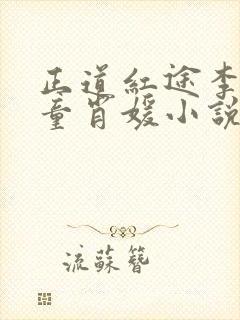 正道紅途李
童肖媛小說
流蘇簪